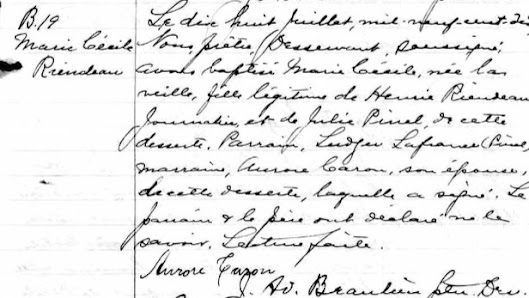 B.19
Marie Cécile
Riendeau
Le dix huit juillet, mil-neuf-cent-di
Nous prêtre, Desservant, soussigné,
avons baptisé Marie Cécile, née la
veille, fille légitime de Henri Riendeau
Journalier, et de Julie Pinel, de cette
desserte, Parrain, Ludger Lafrance (Pinel,
marraine, Aurore Caron, son épouse,
de cette desserte, laquelle a signé. Le
parrain & le père ont déclaré ne le
savoir. Lecture faite.
Aurore Caron
J. Ad. Beaulieu Ptre. Desv